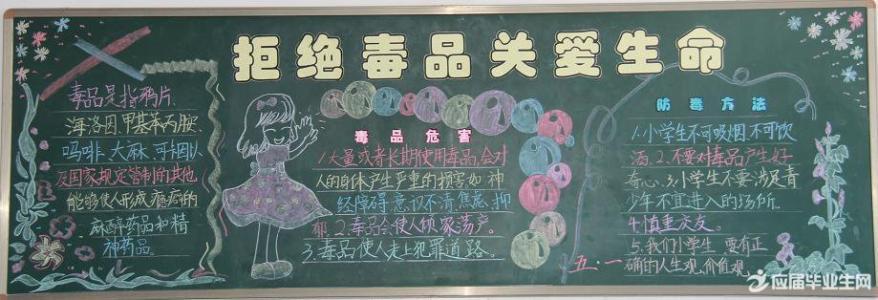 拒绝毒品关爱生命
毒品是指鸦片、
海洛因、甲基苯丙胺、
吗啡、大麻、可卡因以
及国家规定管制的其他
能够使人形成瘾癖的
麻醉药品和精
神药品。
毒品危害
1.大量或者长期使用毒品,会对
人的身体产生严重的损害如神
经障碍意识不清焦虑、抑
郁、2.毒品会使人倾家荡产。
3.毒品使人走上犯罪道路。
防毒方法
1.小学生不可吸烟、不可饮
酒、2.不要对毒品产生好
奇心、3.小学生不要涉足青
少年不宜进入的场所、
4.慎重交友。
5.我们小学生要有正
确的人生观、价值观。
五·一
应届毕业生网